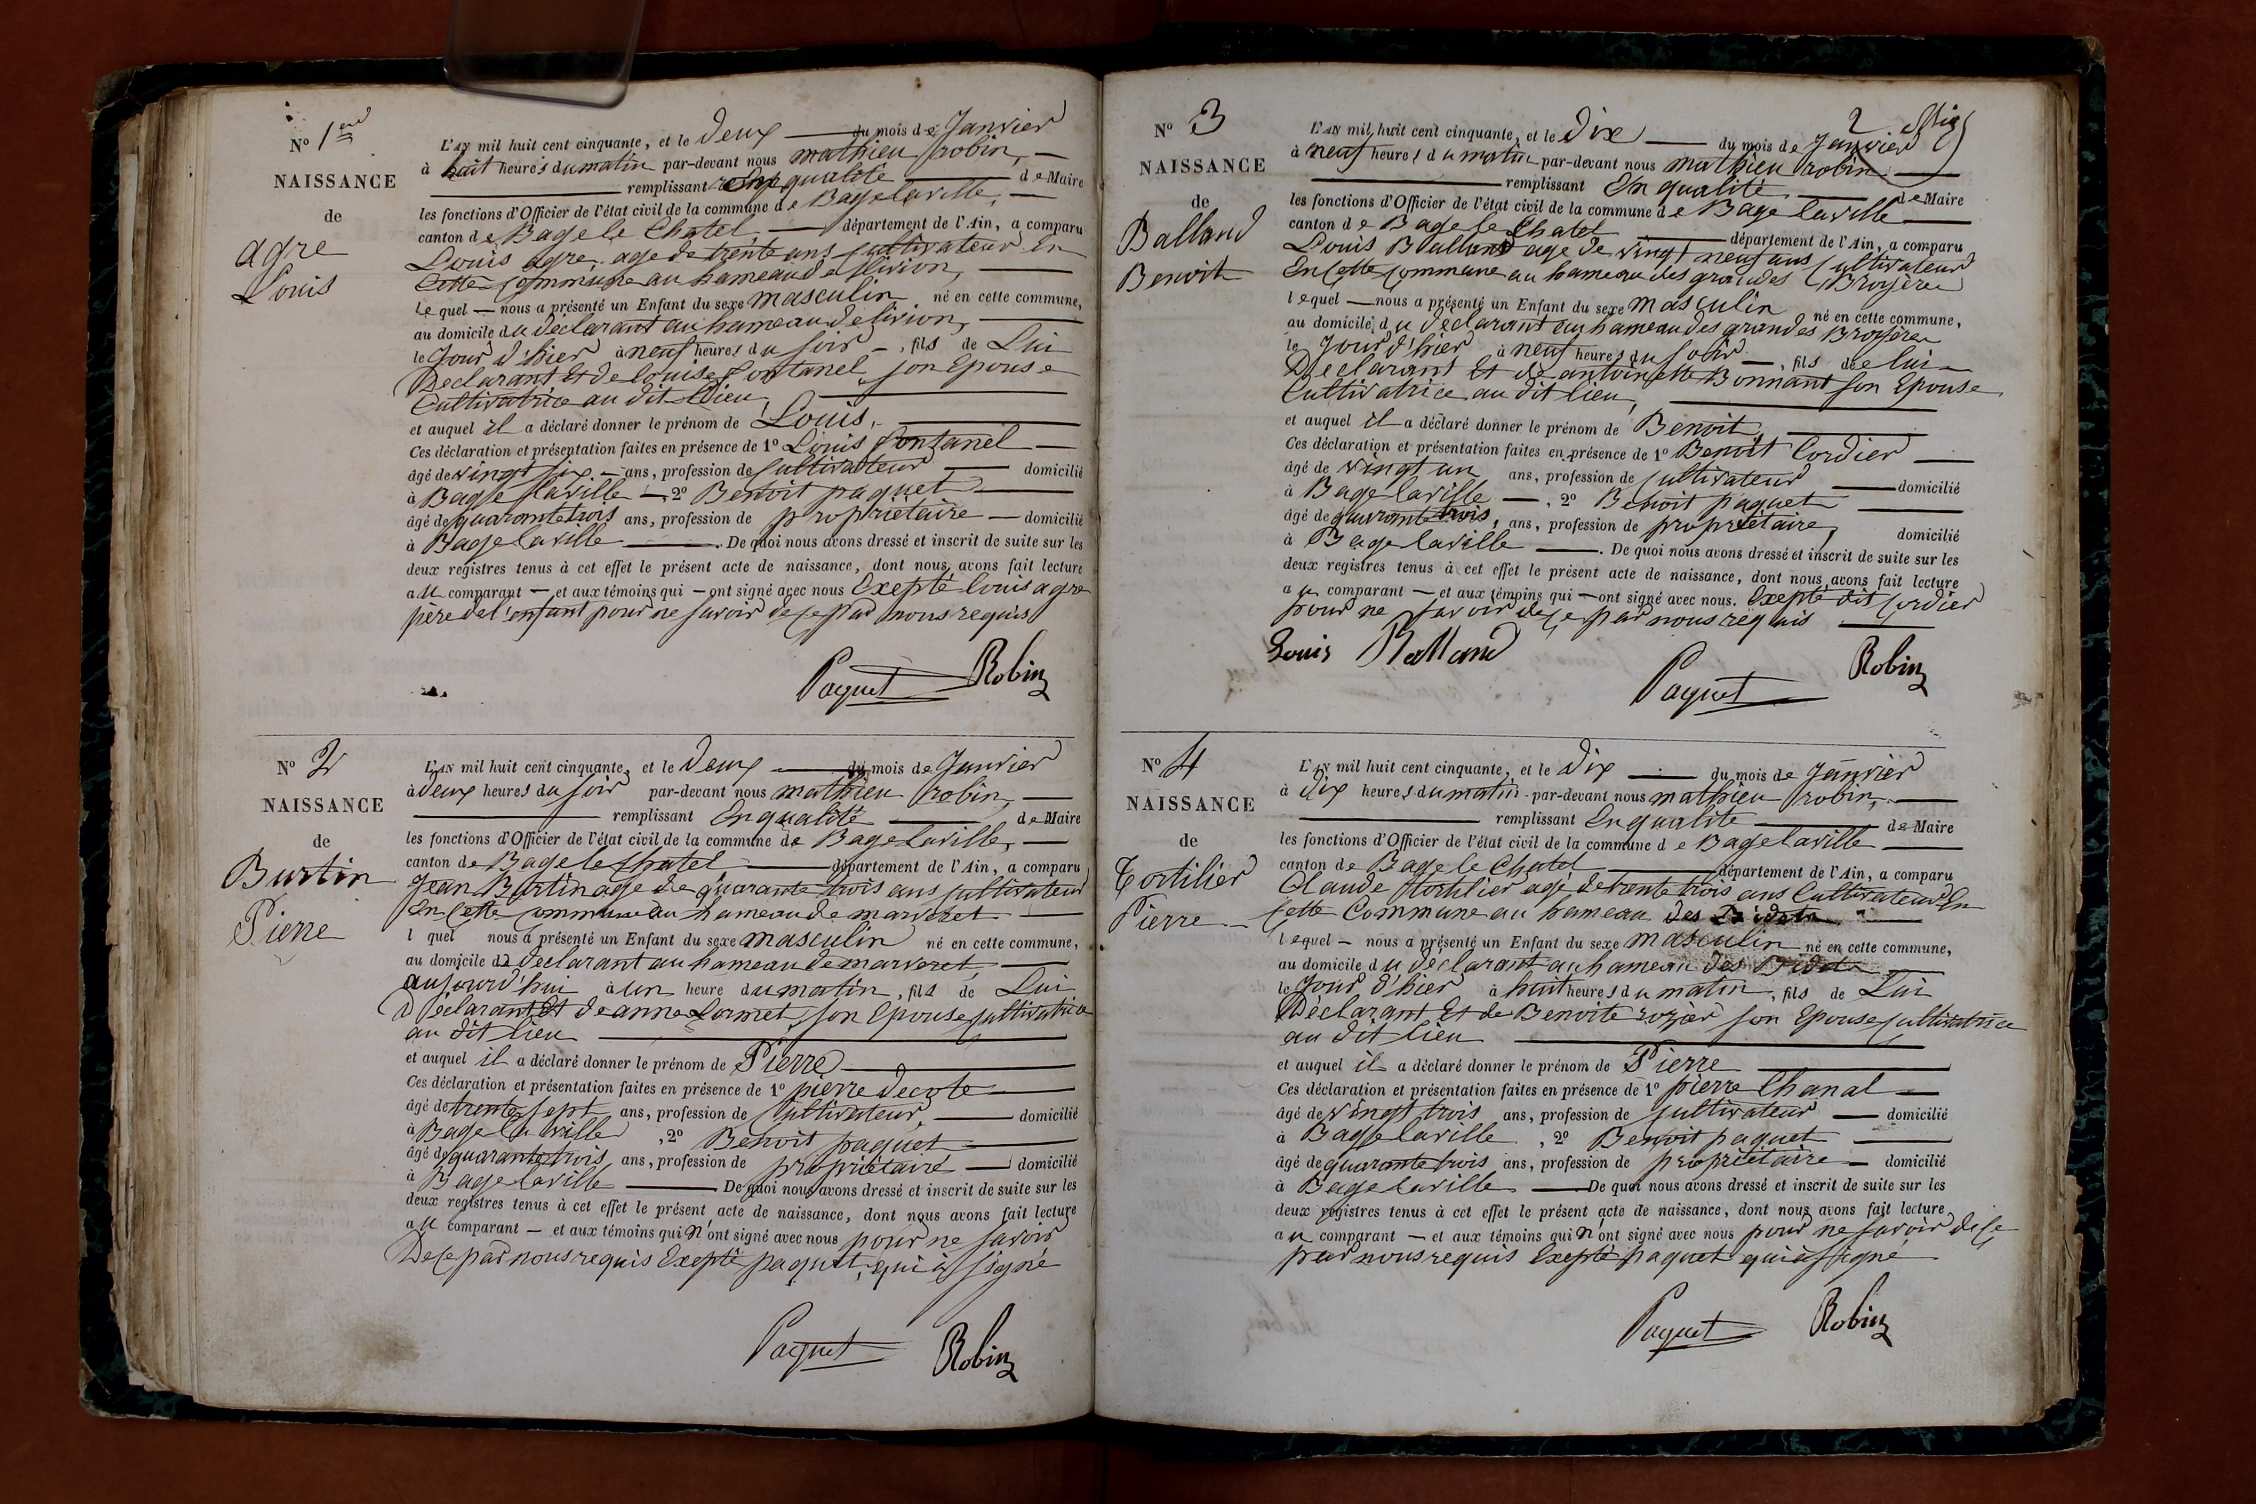 N° 1er
NAISSANCE
de
agre
Louis
L'AN mil huit cent cinquante, et le deux du mois de Janvier
à huit heures du matin par-devant nous mathieu robin,
remplissant En qualité de Maire
les fonctions d'Officier de l'état civil de la commune de Bage laville,
canton de Bage le Chatel, département de l'Ain, a comparu
Louis agre age de trente ans cultivateur En
Cette Commune au hameau de
lequel nous a présenté un Enfant du sexe masculin né en cette commune,
au domicile du déclarant au hameau de
le Jour d'hier à neuf heures du soir, fils de Lui
Déclarant Et de Louise fontanel son Epouse
Cultivatrice au dit Lieu,
et auquel il a déclaré donner le prénom de Louis,
Ces déclaration et présentation faites en présence de 1° Louis fontanel
âgé de vingt six ans, profession de Cultivateur domicilié
à Bage laville, 2° Benoit paquet
âgé de quarante trois ans, profession de propriétaire domicilié
à Bage laville. De quoi nous avons dressé et inscrit de suite sur les
deux registres tenus à cet effet le présent acte de naissance, dont nous avons fait lecture
au comparant et aux témoins qui ont signé avec nous Exepté louis agre
père de l'enfant pour ne savoir de ce par nous requis
Paquet Robin
N° 2
NAISSANCE
de
Burtin
Pierre
L'AN mil huit cent cinquante, et le Deux du mois de Janvier
à deux heures du soir par-devant nous mathieu robin,
remplissant En qualité de Maire
les fonctions d'Officier de l'état civil de la commune de Bage laville,
canton de Bage le Chatel département de l'Ain, a comparu
Jean Burtin age de quarante trois ans cultivateur
En Cette Commune au hameau de marveret
l quel nous a présenté un Enfant du sexe masculin né en cette commune,
au domicile du déclarant au hameau de marveret
aujourd'hui à un heure du matin, fils de Lui
Déclarant Et de anne Lormet, son Epouse cultivatrice
au dit lieu
et auquel il a déclaré donner le prénom de Pierre
Ces déclaration et présentation faites en présence de 1° pierre decote
âgé de trente sept ans, profession de Cultivateur, domicilié
à Bage la ville, 2° Benoit paquet
âgé de quarante trois ans, profession de propriétaire domicilié
à Bage laville De quoi nous avons dressé et inscrit de suite sur les
deux registres tenus à cet effet le présent acte de naissance, dont nous avons fait lecture
au comparant et aux témoins qui n'ont signé avec nous pour ne savoir
De Ce par nous requis Exepté paquet, qui à signé
Paquet Robin
2
N° 3
NAISSANCE
de
Balland
Benoit
L'AN mil huit cent cinquante, et le Dix du mois de Janvier
à neuf heures du matin par-devant nous mathieu robin,
remplissant En qualité de Maire
les fonctions d'Officier de l'état civil de la commune de Bage laville
canton de Bage le Chatel département de l'Ain, a comparu
Louis Balland age de vingt neuf ans Cultivateur
En Cette Commune au hameau des grandes Broyères
lequel nous a présenté un Enfant du sexe masculin né en cette commune,
au domicile du déclarant au hameau des grandes Broyères
le Jour d'hier à neuf heures du soir, fils de lui
Déclarant Et de antoinette Bonnant son Epouse
Cultivatrice au dit lieu,
et auquel il a déclaré donner le prénom de Benoit,
Ces déclaration et présentation faites en présence de 1° Benoit Cordier
âgé de vingt un ans, profession de Cultivateur domicilié
à Bage laville, 2° Benoit paquet
âgé de quarante trois, ans, profession de propriétaire, domicilié
à Bage laville. De quoi nous avons dressé et inscrit de suite sur les
deux registres tenus à cet effet le présent acte de naissance, dont nous avons fait lecture
au comparant et aux témoins qui ont signé avec nous. Exepté dit Cordier
pour ne savoir de ce par nous requis
Louis Balland Paquet Robin
N° 4
NAISSANCE
de
Tortilier
Pierre
L'AN mil huit cent cinquante, et le Dix du mois de Janvier
à Dix heures du matin par-devant nous mathieu robin,
remplissant En qualité de Maire
les fonctions d'Officier de l'état civil de la commune de Bage laville
canton de Bage le Chatel département de l'Ain, a comparu
Claude tortilier agé de trente trois ans Cultivateur En
Cette Commune au hameau des
lequel nous a présenté un Enfant du sexe masculin né en cette commune,
au domicile du déclarant au hameau des
le Jour d'hier à huit heures du matin, fils de Lui
Déclarant Et de Benoite rozier son Epouse cultivatrice
au dit lieu
et auquel il a déclaré donner le prénom de Pierre
Ces déclaration et présentation faites en présence de 1° pierre Chanal
âgé de vingt trois ans, profession de Cultivateur domicilié
à Bage laville, 2° Benoit paquet
âgé de quarante trois ans, profession de propriétaire domicilié
à Bage laville De quoi nous avons dressé et inscrit de suite sur les
deux registres tenus à cet effet le présent acte de naissance, dont nous avons fait lecture
au comparant et aux témoins qui n'ont signé avec nous pour ne savoir de Ce
par nous requis Exepté paquet qui à signé
Paquet Robin